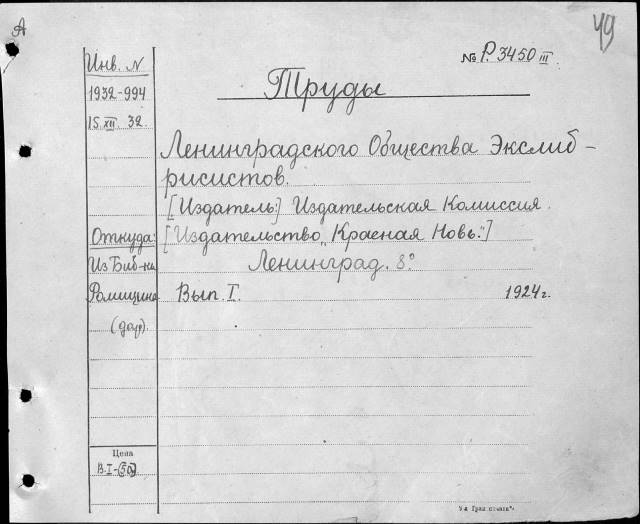 А
49
Инв. N
№ Р. 3450 III
1932-994
Труды
15.XII. 32.
Ленинградского Общества Экслиб-
рисистов.
[Издатель:] Издательская Комиссия.
Откуда: [Издательство „Красная Новь."]
Из Биб-ки Ленинград. 8°
Вып. I. 1924 г.
(дар).
Цена
В.I-(50)